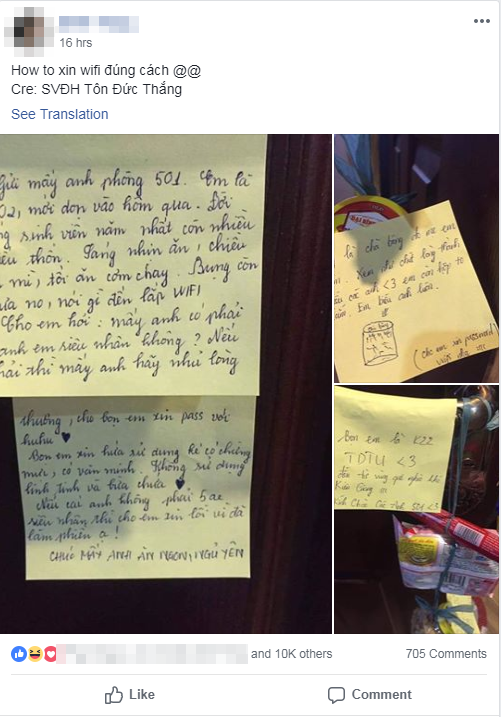 16 hrs
How to xin wifi đúng cách @@
Cre: SVĐH Tôn Đức Thắng
See Translation
Gửi mấy anh phòng 501. Em là
02, mới dọn vào hôm qua. Đời
sinh viên năm nhất còn nhiều
thốn. Sáng nhịn ăn, chiều
mì, tối ăn cơm chay. Bụng còn
no, nói gì đến lắp WIFI
Cho em hỏi: mấy anh có phải
anh em siêu nhân không? Nếu
phải thì mấy anh hãy nhủ lòng
thương, cho bọn em xin pass với
huhu ♥
Bọn em xin hứa sử dụng kẻ có chừng
mực, có văn minh. Không sử dụng
linh tinh và bừa chửa ♥
Nếu các anh không phải 5 ae
siêu nhân thì cho em xin lỗi vì đã
làm phiền ạ!
CHÚC MẤY ANH ĂN NGON, NGỦ YÊN
là chà bông do mẹ em
các anh <3 em còn
Em biếu anh luôn.
(Cho em xin password
Bọn em là K22
TDTU <3
501 <3
and 10K others
705 Comments
Like
Comment